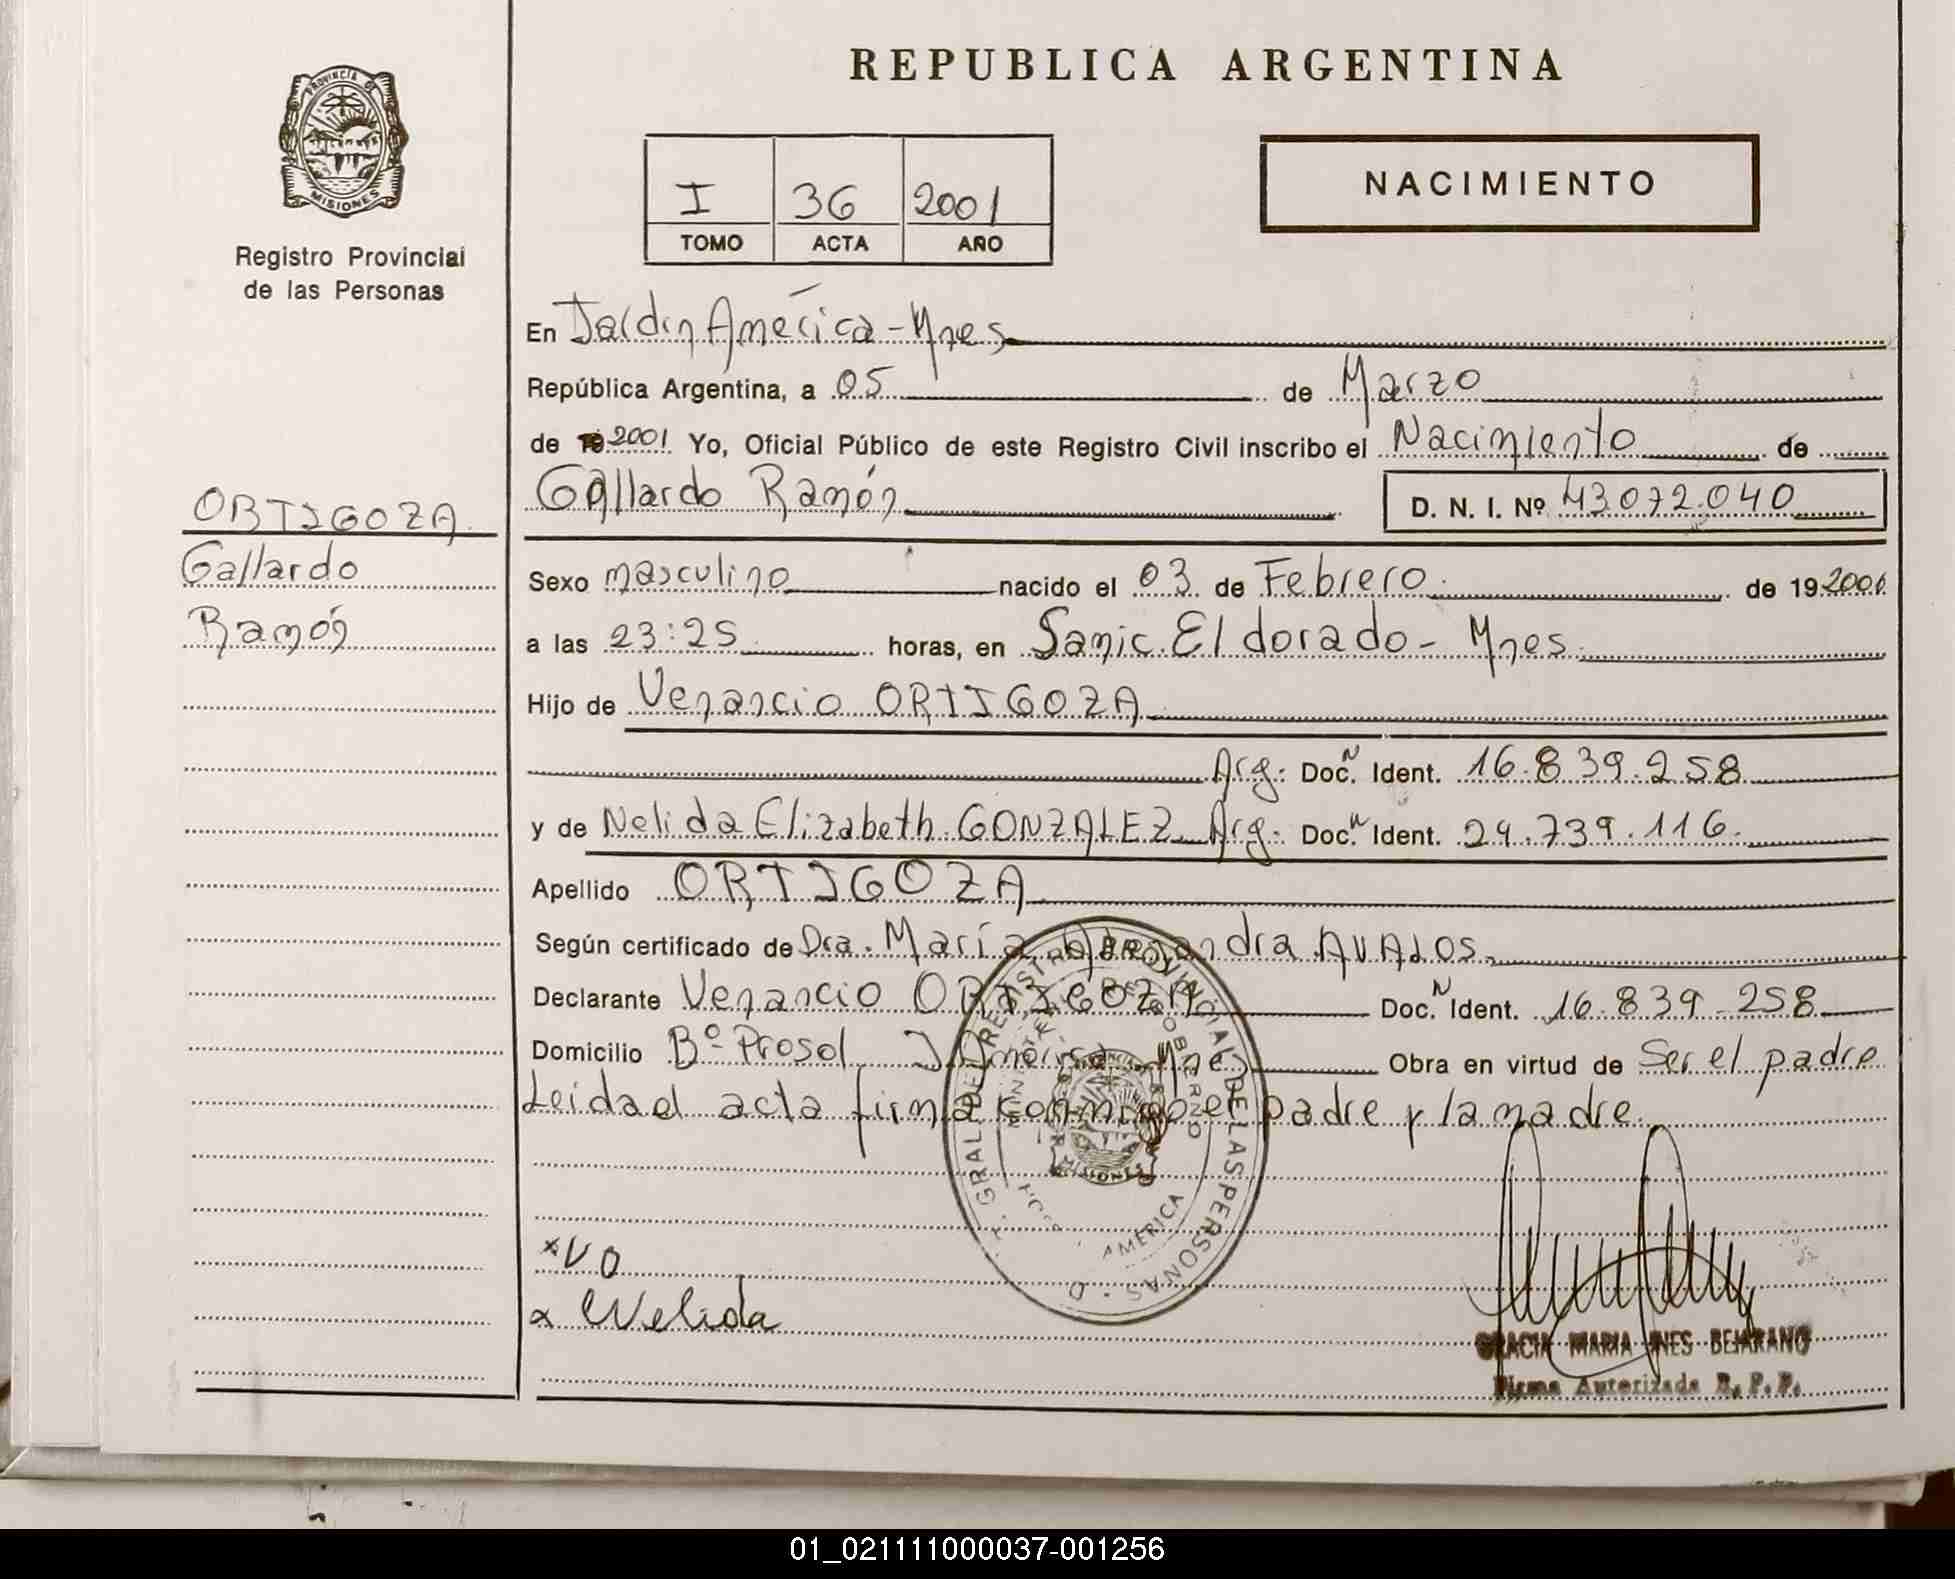 REPUBLICA ARGENTINA
PROVINCIA DE
MISIONES
Registro Provincial
de las Personas
I 36 2001
TOMO ACTA AÑO
NACIMIENTO
En Jardin América - Mnes
República Argentina, a 05 de Marzo
de 19 2001 Yo, Oficial Público de este Registro Civil inscribo el Nacimiento de
Gallardo Ramón D. N. I. Nº 43.072.040
ORTIGOZA
Gallardo
Ramón
Sexo masculino nacido el 03 de Febrero de 19 2001
a las 23:25 horas, en Samic Eldorado - Mnes
Hijo de Venancio ORTIGOZA
Arg. Doc. N Ident. 16.839.258
y de Nelida Elizabeth GONZALEZ Arg. Doc. N Ident. 24.739.116
Apellido ORTIGOZA
Según certificado de Dra. María Alejandra AVALOS
Declarante Venancio ORTIGOZA Doc. N Ident. 16.839.258
Domicilio Bº Prosol J. América Mnes Obra en virtud de Ser el padre
Leida el acta firma conmigo el padre y la madre
GRAL. DEL REGISTRO PROVINCIAL DE LAS PERSONAS
AMERICA
MISIONES
x VO
x Nelida
GRACIA MARIA INES BEJARANO
Firma Autorizada R. P. P.
01_021111000037-001256